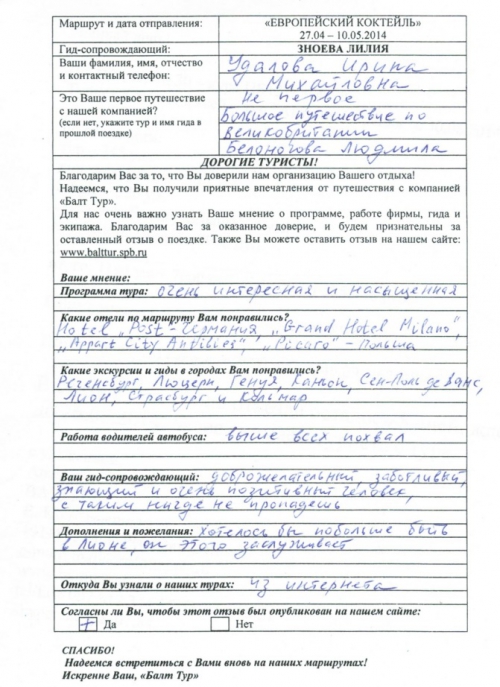 Маршрут и дата отправления: «ЕВРОПЕЙСКИЙ КОКТЕЙЛЬ»
27.04 – 10.05.2014
Гид-сопровождающий: ЗНОЕВА ЛИЛИЯ
Ваши фамилия, имя, отчество Удалова Ирина
и контактный телефон: Михайловна
Это Ваше первое путешествие не первое
с нашей компанией? Большое путешествие по
(если нет, укажите тур и имя гида в Великобритании
прошлой поездке) Белоногова Людмила
ДОРОГИЕ ТУРИСТЫ!
Благодарим Вас за то, что Вы доверили нам организацию Вашего отдыха!
Надеемся, что Вы получили приятные впечатления от путешествия с компанией
«Балт Тур».
Для нас очень важно узнать Ваше мнение о программе, работе фирмы, гида и
экипажа. Благодарим Вас за оказанное доверие, и будем признательны за
оставленный отзыв о поездке. Также Вы можете оставить отзыв на нашем сайте:
www.balttur.spb.ru
Ваше мнение:
Программа тура: очень интересная и насыщенная
Какие отели по маршруту Вам понравились?
Hotel „Post"-Германия, „Grand Hotel Milano",
„Appart City", „Picaro" - Польша
Какие экскурсии и гиды в городах Вам понравились?
Регенсбург, Люцерн, Генуя, Каньон, Сен-Поль де Ванс,
Лион, Страсбург и Кольмар
Работа водителей автобуса: выше всех похвал
Ваш гид-сопровождающий: доброжелательный, заботливый,
знающий и очень позитивный человек,
с таким нигде не пропадешь
Дополнения и пожелания: Хотелось бы побольше быть
в Лионе, он этого заслуживает
Откуда Вы узнали о наших турах: из интернета
Согласны ли Вы, чтобы этот отзыв был опубликован на нашем сайте:
+ Да Нет
СПАСИБО!
Надеемся встретиться с Вами вновь на наших маршрутах!
Искренне Ваш, «Балт Тур»